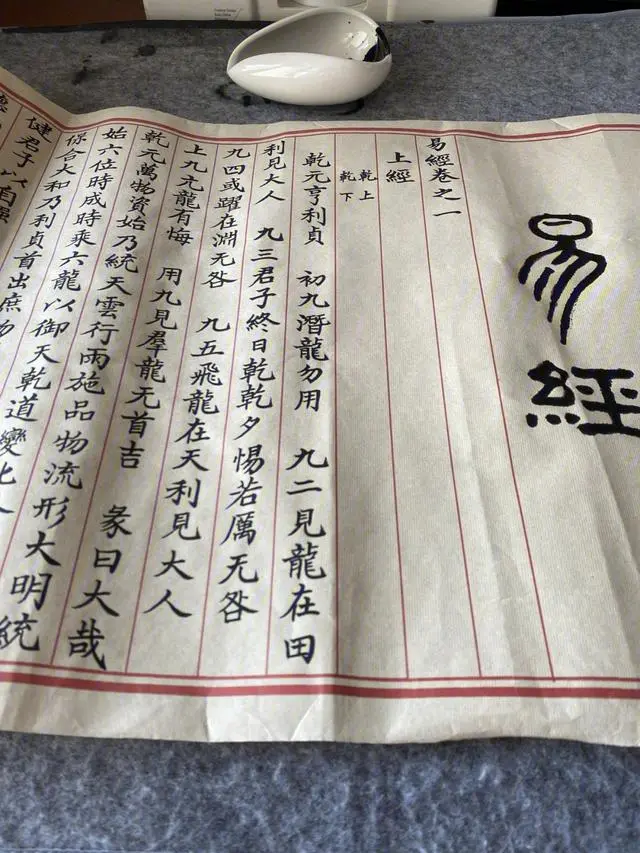 易經
易經卷之一
上經
乾上
乾下
乾元亨利貞 初九潛龍勿用 九二見龍在田
利見大人 九三君子終日乾乾夕惕若厲无咎
九四或躍在淵无咎 九五飛龍在天利見大人
上九亢龍有悔 用九見羣龍无首吉 彖曰大哉
乾元萬物資始乃統天雲行雨施品物流形大明統
始六位時成時乘六龍以御天乾道變化
保合大和乃利貞首出庶物
健君子以自強